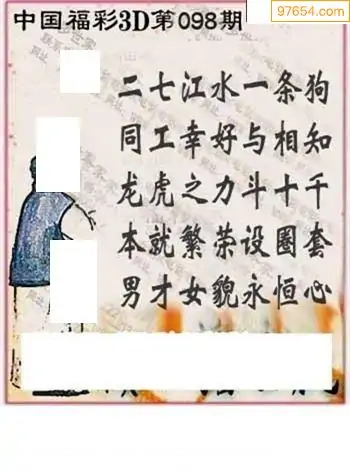 中国福彩3D第098期
97654.com
二七江水一条狗
同工幸好与相知
龙虎之力斗十千
本就繁荣设圈套
男才女貌永恒心